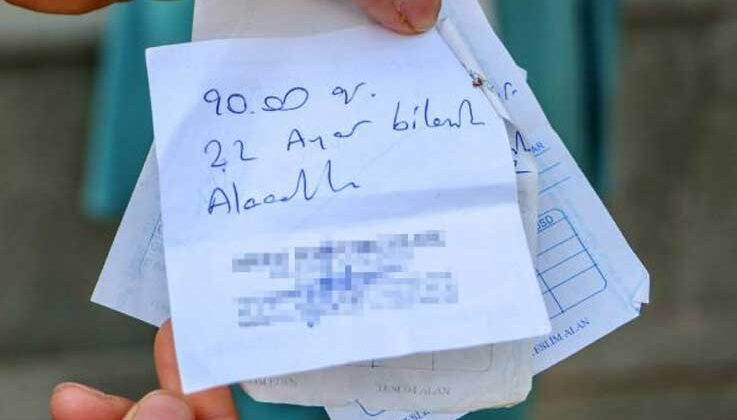 90.00 gr.
22 Ayar bilezik
Alacaklı
AR
USD
TESLİM ALAN
TESLİM ALAN